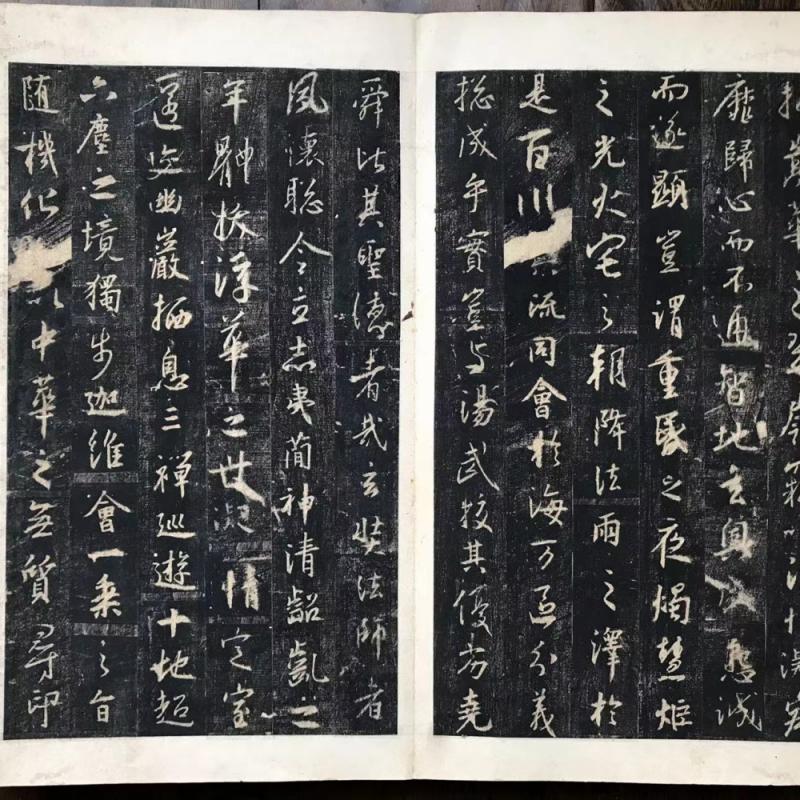 接嵩華之翠嶺竊以法性凝寂
靡歸心而不通智地玄奧感懇誠
而遂顯豈謂重昏之夜燭慧炬
之光火宅之朝降法雨之澤於
是百川流同會於海万區分義
捴成乎實豈与湯武校其優劣堯
舜比其聖德者哉玄奘法師者
夙懷聡令立志夷簡神清齠齔之
年體拔浮華之世凝情定室
匿迹幽巖栖息三禪巡遊十地超
六塵之境獨步迦維會一乘之旨
随機化以中華之無質尋印